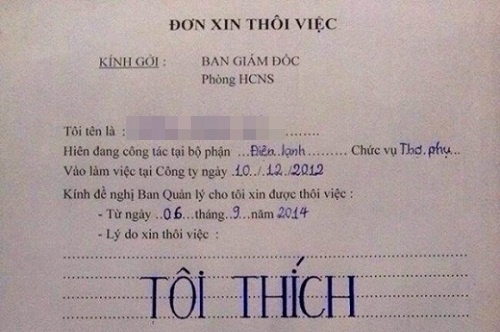 ĐƠN XIN THÔI VIỆC
KÍNH GỞI : BAN GIÁM ĐỐC
Phòng HCNS
Tôi tên là : ..........
Hiên đang công tác tại bộ phận ...Điên lạnh......... Chức vụ Thơ.phụ...
Vào làm việc tại Công ty ngày 10../.12./2012
Kính đề nghị Ban Quản lý cho tôi xin được thôi việc :
- Từ ngày ..06...tháng..9..năm 2014
- Lý do xin thôi việc :
TÔI THÍCH